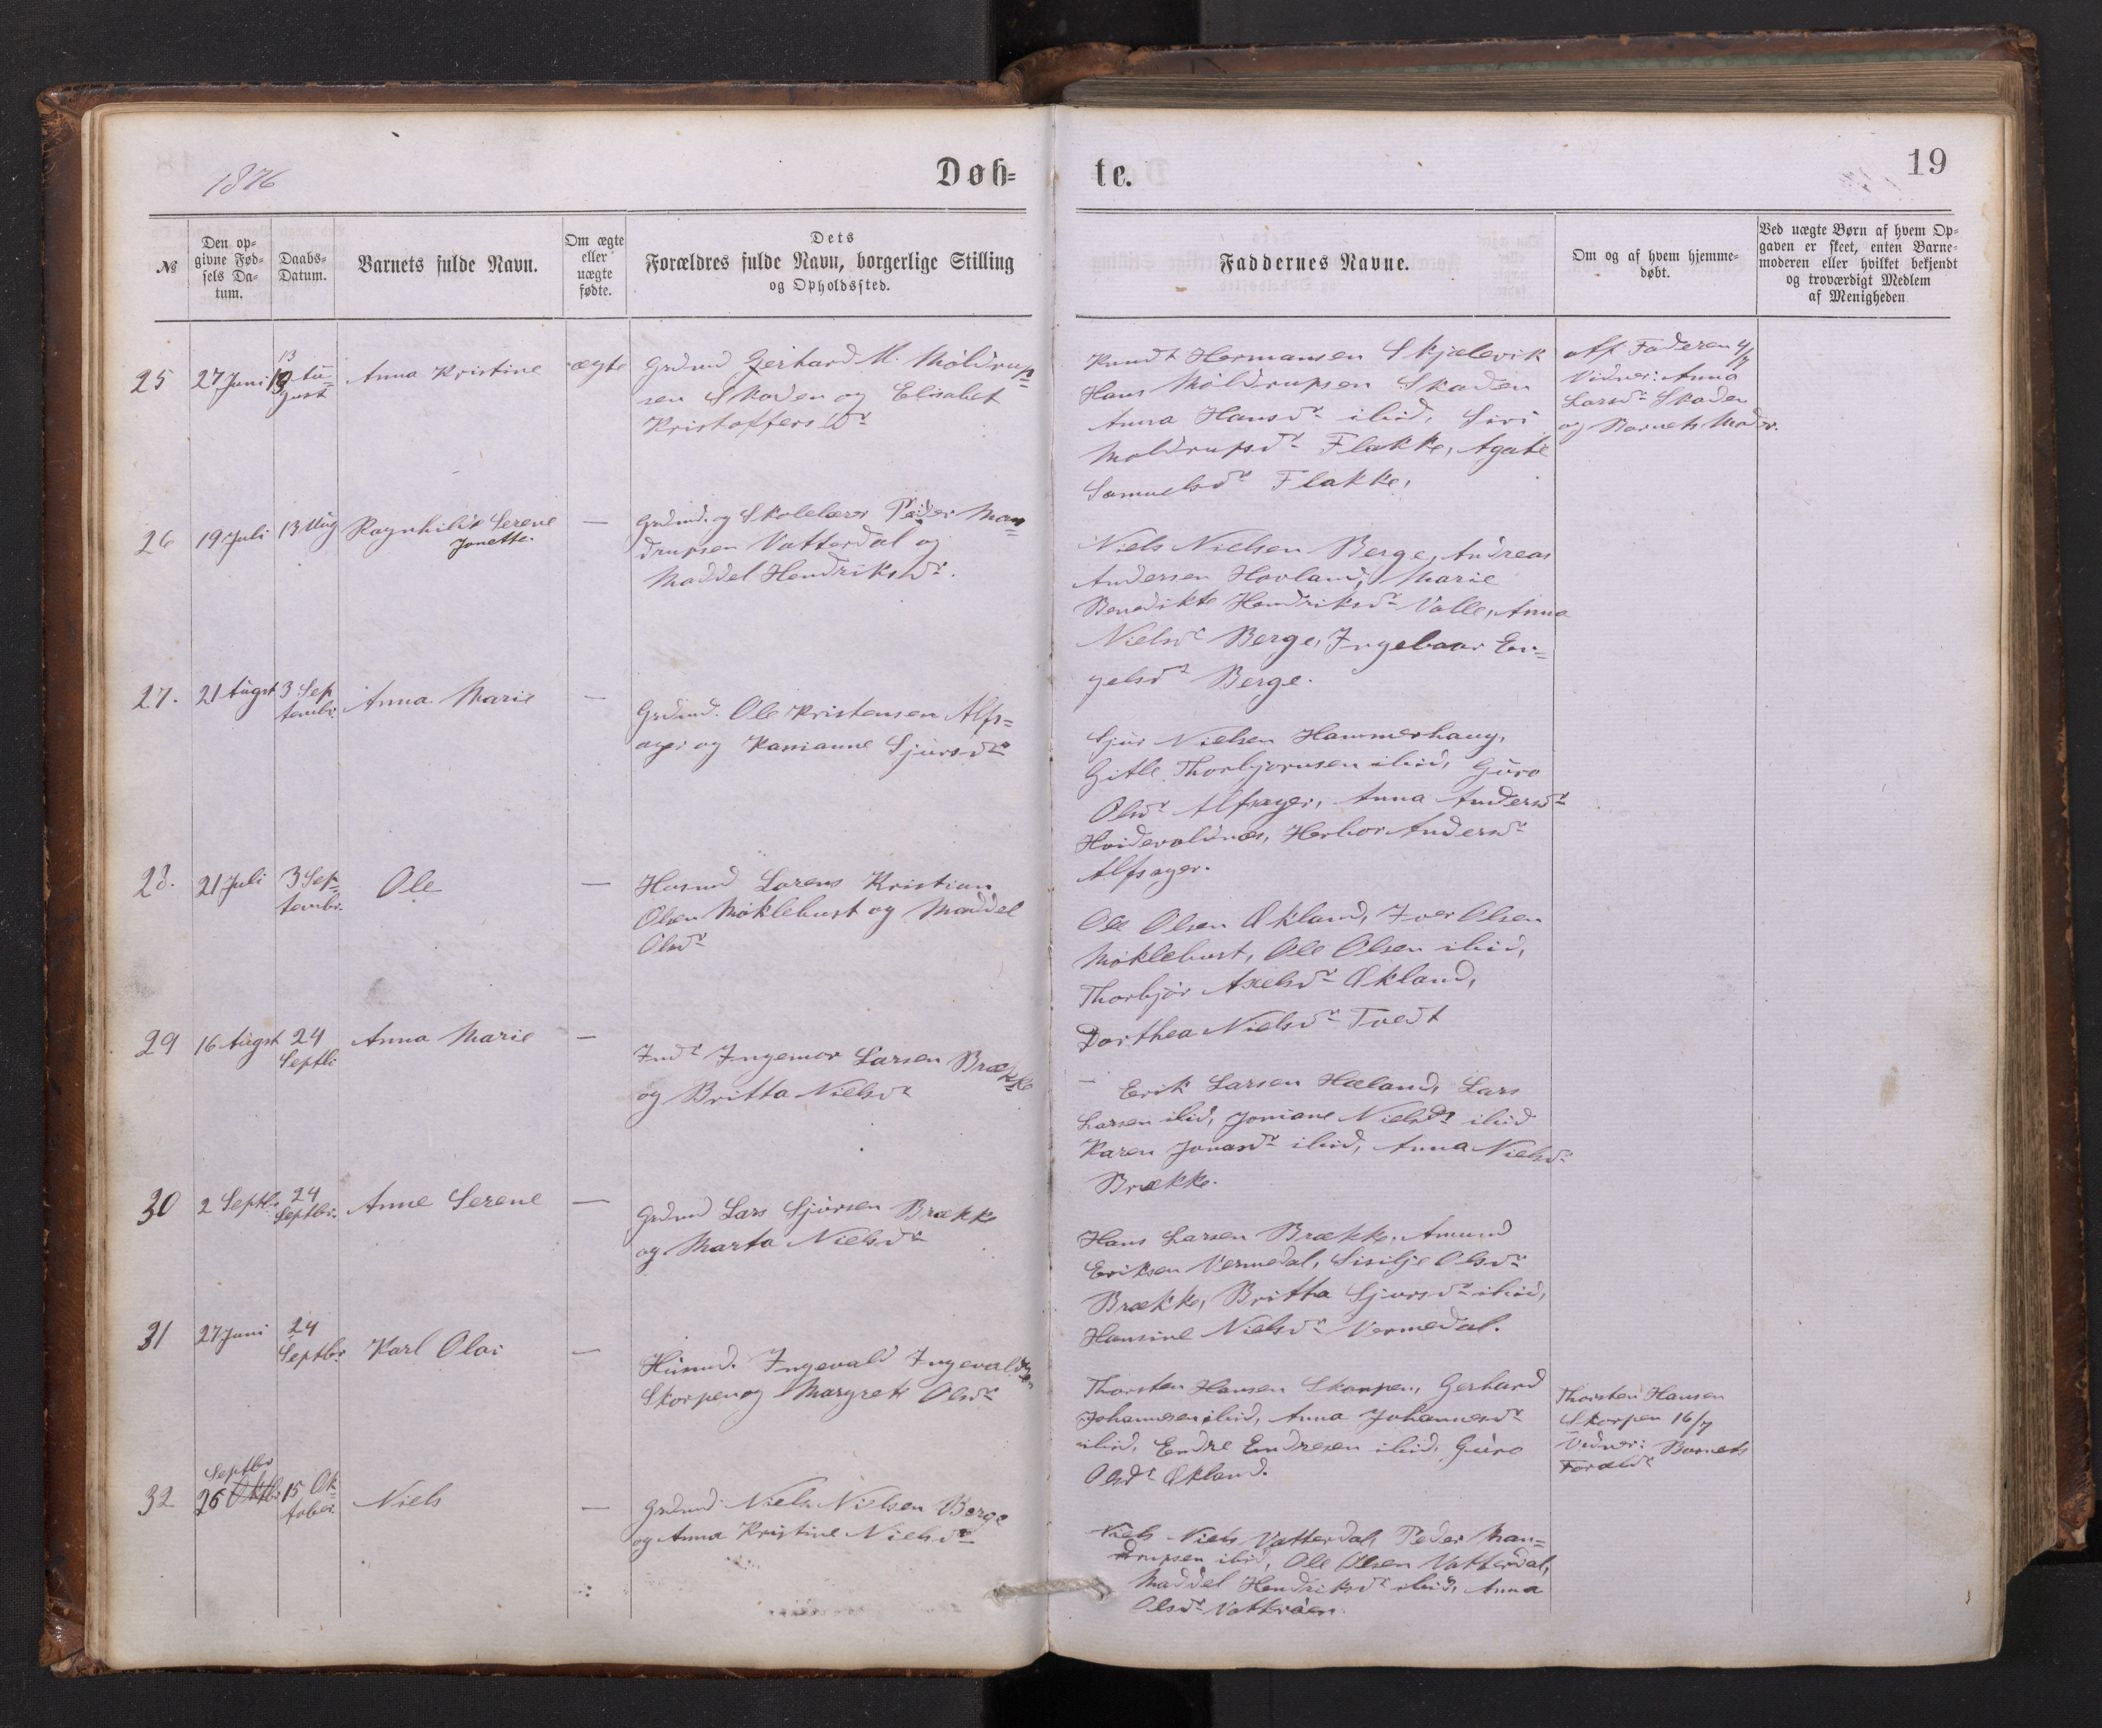 1876
Døb=
te.
19
№
Den op=
givne Fød=
sels Da=
tum.
Daabs=
Datum.
Barnets fulde Navn.
Om ægte
eller
uægte
fødte.
Dets
Forældres fulde Navn, borgerlige Stilling
og Opholdssted.
Faddernes Navne.
Om og af hvem hjemme=
døbt.
Ved uægte Børn af hvem Op=
gaven er skeet, enten Barne=
moderen eller hvilket bekjendt
og troværdigt Medlem
af Menigheden
25
27 Juni
13
Au=
gust
Anna Kristine
ægte
Grdmd Gerhard M. Moldrup=
sen Skaden og Elisabet
Kristoffersdr
Knudt Hermansen Skjelevik
Hans Moldrupsen Skaden
Anna Hansdr ibid, Siri
Moldrupsdr Flakke, Agate
Samuelsdr Flakke,
Af Faderen 4/7
Vidner: Anna
Larsdr Skaden
og Barnets Moder.
26
19 Juli
13 Aug
Ragnhilde Serene
Jonette.
—
Grdmd. og Skolelærer Peder Man=
drupsen Vatterdal og
Maddel Hendriksdr.
Niels Nielsen Berge, Andreas
Andersen Hovland, Marie
Benedikte Hendriksdr Valle, Anna
Nielsdr Berge, Ingeboer En=
gelsdr Berge.
27.
21 Augst
3 Sep
tembr.
Anna Marie
—
Grdmd. Ole Kristensen Alfs=
ager og Kanianne Sjursdr
Sjur Nielsen Hammerhaug,
Gitle Thorbjornsen ibid, Guro
Olsdr Alfsager, Anna Andersdr
Hoidevoldnæs, Herbor Andersdr
Alfsager.
28.
21 Juli
3 Sep=
tembr.
Ole
—
Husmd Lorens Kristian
Olsen Møklebust og Maddel
Olsdr
Ole Olsen Økland, Iver Olsen
Møklebust, Ole Olsen ibid,
Thorbjør Axelsdr Økland,
Dorthea Nielsdr Tvedt
29
16 Augst
24
Septbr
Anna Marie
—
Indr Ingemor Larsen Brække
og Britta Nielsdr
— Erik Larsen Hæland, Lars
Larsen ibid, Joniane Nielsdr ibid
Karen Jonasdr ibid, Anna Nielsdr
Brække.
30
2 Septbr
24
Septbr.
Anne Serene
—
Grdmd Lars Sjursen Brække
og Marta Nielsdr
Hans Larsen Brække, Amund
Eriksen Vermedal, Sisilje Olsdr
Brække, Britta Sjursdr ibid,
Hansine Nielsdr Vermedal.
31
27 Juni
24
Septbr.
Karl Olai
—
Husmd. Ingevald Ingevaldsen
Skorpen og Margrete Olsdr
Thorsten Hansen Skorpen, Gerhard
Johannesen ibid, Anna Johannesdr
ibid, Endre Endresen ibid, Guro
Olsdr Økland.
Thorsten Hansen
Skorpen 16/7
Vidner: Barnets
Forældr
32
Septbr
26 Oktbr
15 Ok=
tober.
Niels
—
Grdmd. Niels Nielsen Berge
og Anna Kristine Nielsdr
Niels Niels Vatterdal, Peder Man=
drupsen ibid, Ole Olsen Vatterdal,
Maddel Hendriksdr ibid, Anna
Olsdr